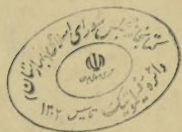 کتابخانه مجلس شورای اسلامی (بهارستان)
تاسیس ۱۳۰۲